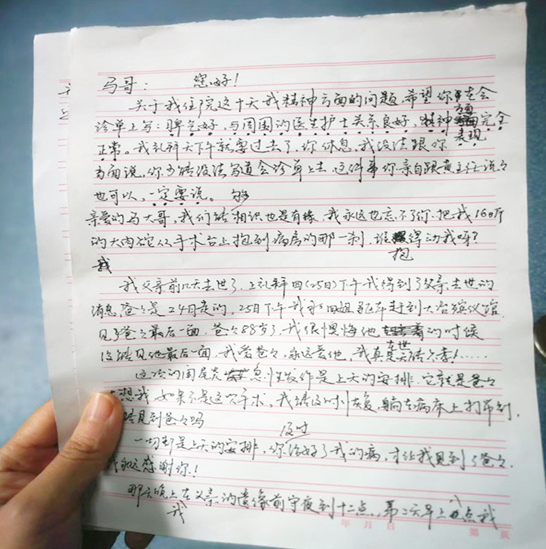 马哥：您好！
关于我住院这十天我精神方面的问题，希望你在会
诊单上写：脾气好，与周围的医生护士关系良好，精神方面完全
正常。表现
我礼拜天下午就要过去了，你休息，我没法跟你
当面说，你方便没法写道会诊单上去，这件事你亲自跟黄主任说说
也可以，一定要说。
亲爱的马大哥，我们能够相识也是有缘，我永远也忘不了你，把我160斤
的大肉坨从手术台上抱到病房的那一刹，谁抱得动我呀？
我父亲前几天去世了，上礼拜四(25日)下午我得到了父亲去世的
消息，爸爸是24日走的，25日下午我和姐姐驱车赶到大谷殡仪馆
见了爸爸最后一面，爸爸88岁了，我很悔恨他在世的时候
没能见他最后一面，我爱爸爸，永远爱他，我真是不孝！……
这次的周尾炎急性发作是上天的安排，它就是爸爸
想我，如果不是这次手术，我能及时恢复，躺在病床上打吊针，
能见到爸爸吗
一切都是上天的安排，你治好了我的病，才让我见到了爸爸，
我永远感谢你！
那天晚上在父亲的遗像前守夜到十二点，第二天早上
我
年 月 日 第 页